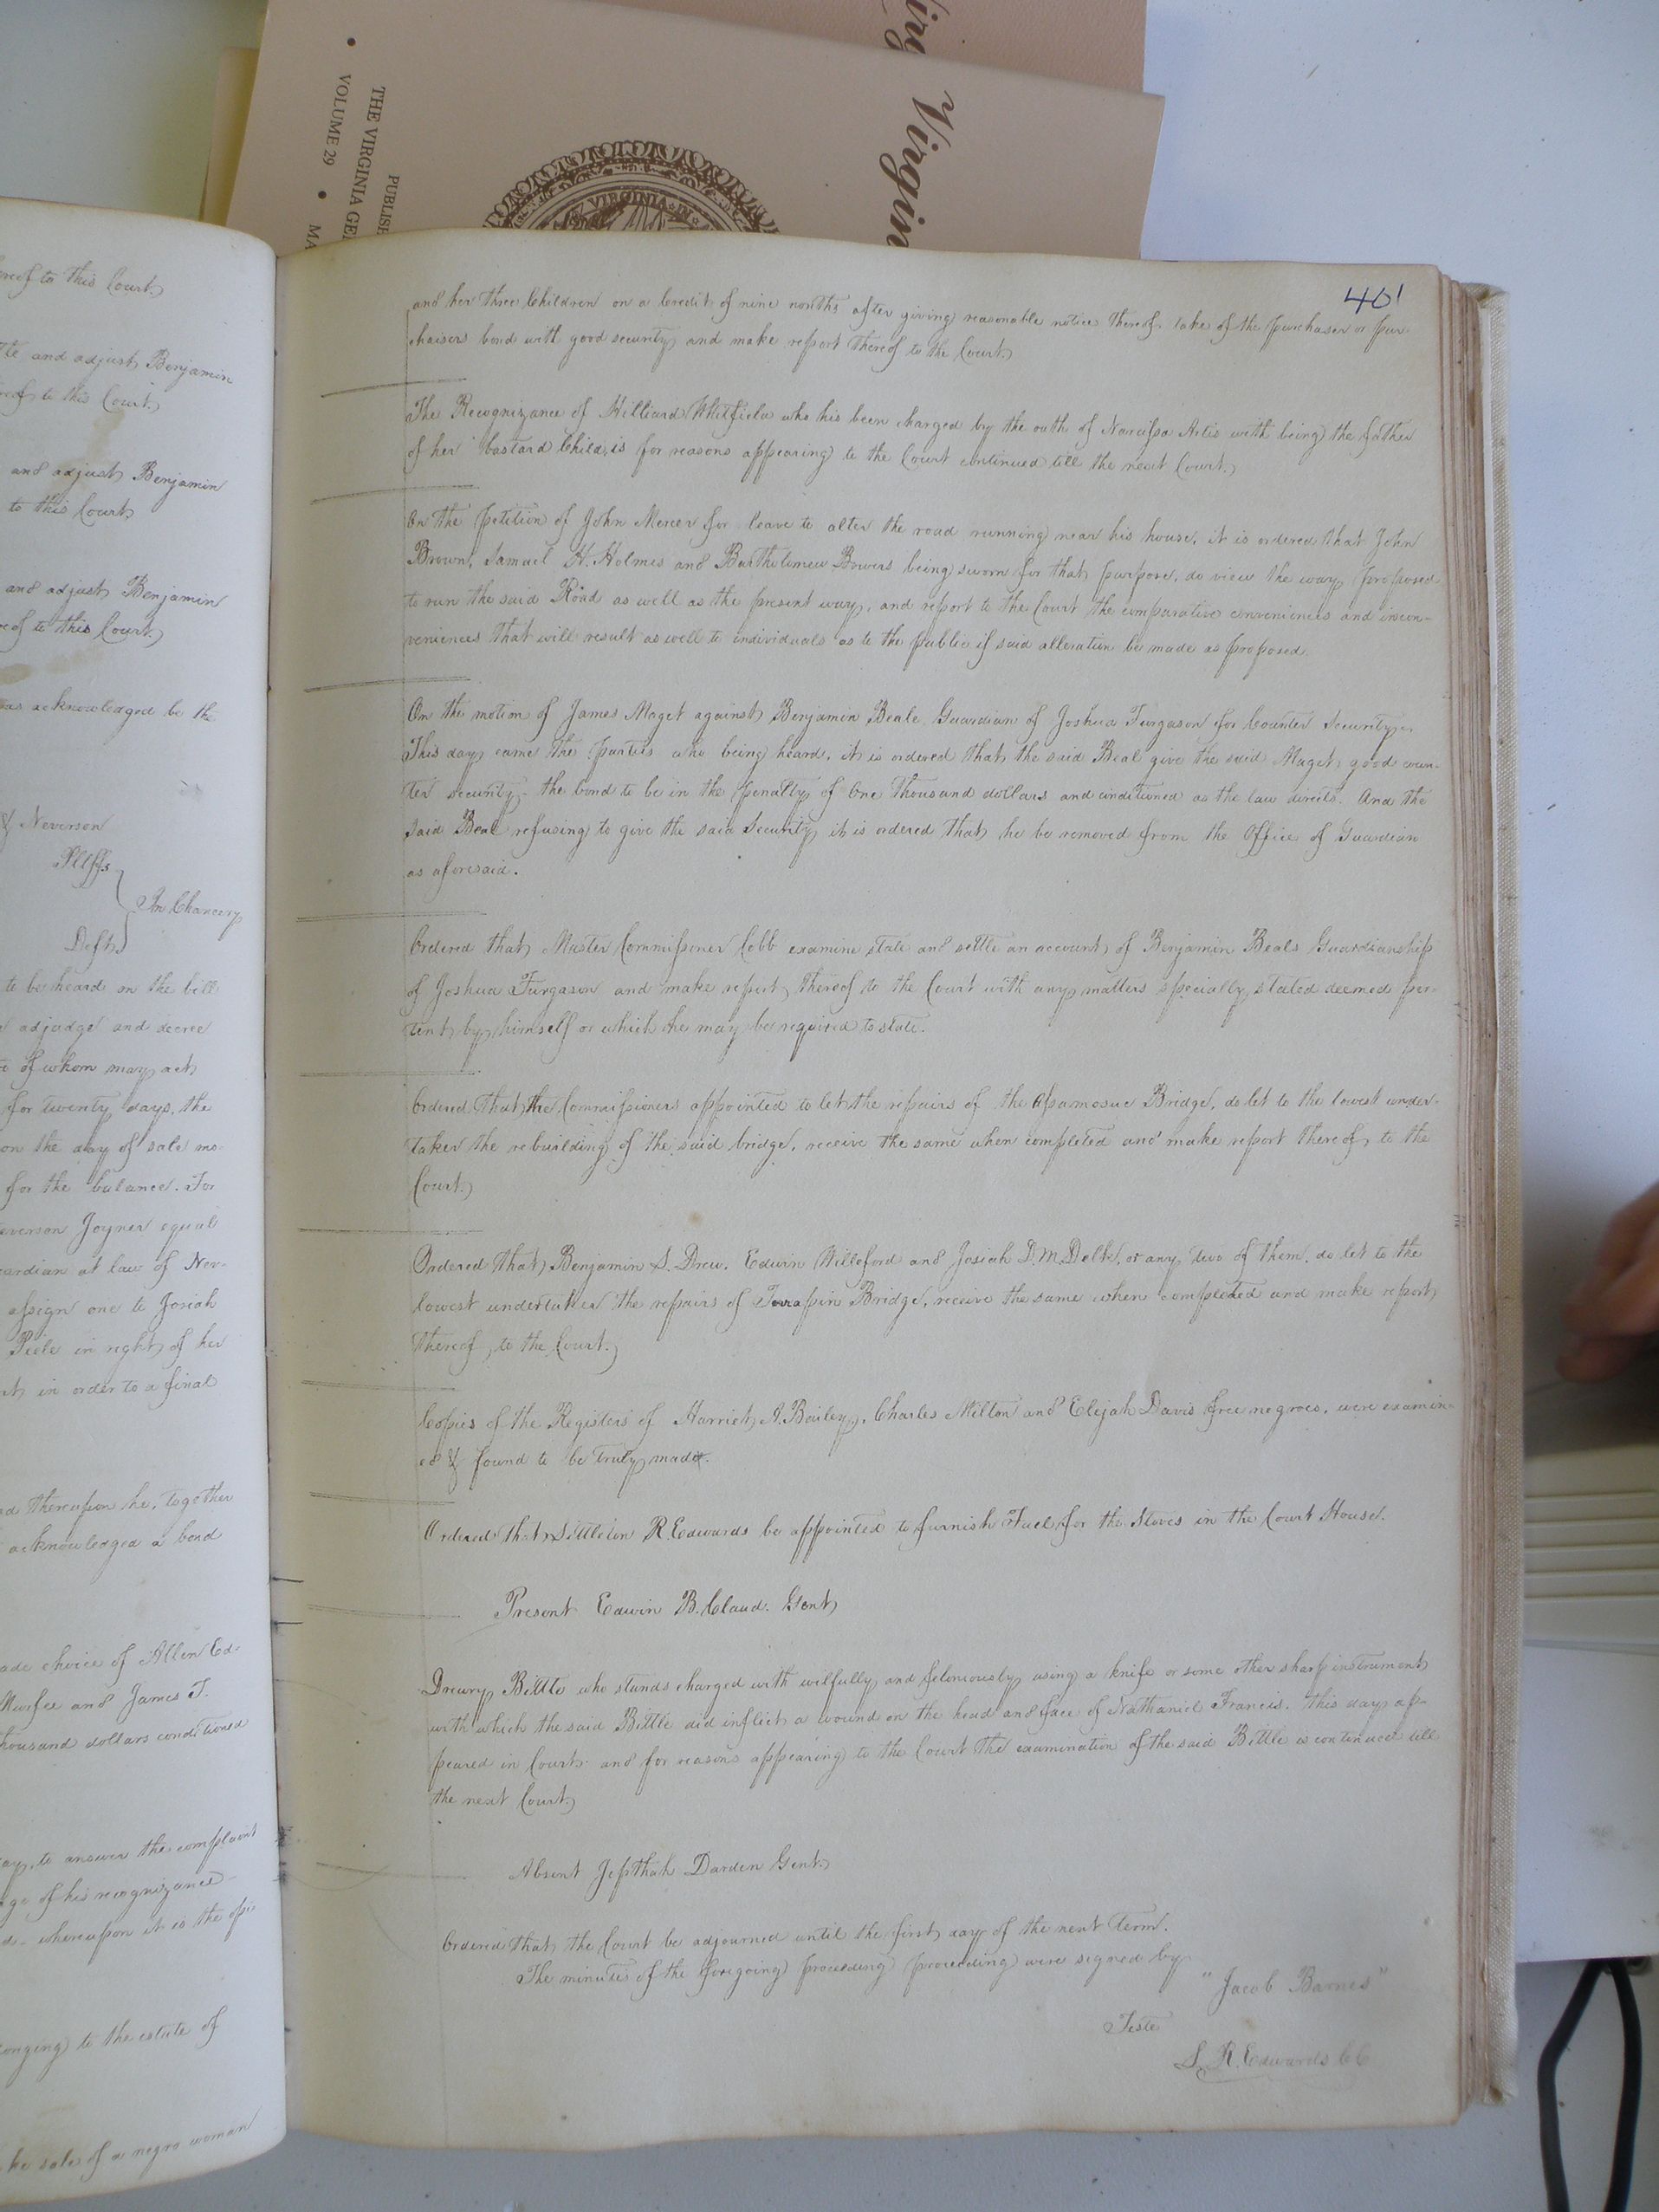 Virgin
THE VIRGINIA GE
VOLUME 29 • MA
VIRGINIA IN
reof to this Court.
and adjust Benjamin
reof to this Court.
and adjust Benjamin
to this Court
and adjust Benjamin
reof to this Court.
as acknowledged be the
& Neverson
Pltffs
In Chancery
Defts
to be heard on the bill
adjudge and decree
of whom may act
for twenty days, the
on the day of sale
for the balance. For
everson Joyner equal
ardian at law of Nev-
assign one to Josiah
Peele in right of her
in order to a final
thereupon he, together
acknowledged a bond
ade choice of Allen Ed-
Murfee and James T.
housand dollars conditioned
to answer the complaint
ge of his recognizance
d- whereupon it is the opi-
onging to the estate of
sale of a negro woman
401
and her three Children on a Credit of nine months after giving reasonable notice thereof. take of the purchaser or pur-
chasers bond with good security and make report thereof to the Court.
The Recognizance of Hilliard Whitfield who his been charged by the oath of Narcissa Artis with being the father
of her bastard Child, is for reasons appearing to the Court continued till the next Court.
On the petition of John Mercer for leave to alter the road running near his house, it is ordered that John
Brown, Samuel H. Holmes and Bartholomew Bowers being sworn for that purpose, do view the way proposed
to run the said Road as well as the present way, and report to the Court the comparative conveniences and incon-
veniences that will result as well to individuals as to the public if said alteration be made as proposed.
On the motion of James Maget against Benjamin Beale Guardian of Joshua Furgason for Counter Security.
This day came the parties who being heard, it is ordered that the said Beal give the said Maget good coun-
ter security- the bond to be in the penalty of One Thousand dollars and conditioned as the law directs. And the
said Beal refusing to give the said Security it is ordered that he be removed from the Office of Guardian
as aforesaid.
Ordered that Master Commissioner Cobb examine state and settle an account of Benjamin Beals Guardianship
of Joshua Furgason and make report thereof to the Court with any matters specially stated deemed per-
tint by himself or which he may be required to state.
Ordered that the Commissioners appointed to let the repairs of the Assamosuc Bridge, do let to the lowest under-
taker the rebuilding of the said bridge, receive the same when completed and make report thereof to the
Court.
Ordered that Benjamin S. Drew. Edwin Williford and Josiah D. M. Delk, or any two of them, do let to the
lowest undertaker the repairs of Terrapin Bridge, receive the same when completed and make report
thereof to the Court.
Copies of the Registers of Harriet A. Bailey, Charles Milton and Elijah Davis free negroes, were examin-
ed & found to be truly made.
Ordered that Littleton R. Edwards be appointed to furnish Fuel for the Stoves in the Court House.
Present Edwin B. Claud. Gent
Drewry Bittle who stands charged with wilfully and feloniously using a knife or some other sharp instrument
with which the said Bittle did inflict a wound on the head and face of Nathaniel Francis. this day ap-
peared in Court and for reasons appearing to the Court the examination of the said Bittle is continued till
the next Court.
Absent Jepthah Darden Gent.
Ordered that the Court be adjourned until the first day of the next Term.
The minutes of the foregoing proceeding proceeding were signed by
"Jacob Barnes"
Teste
L. R. Edwards CC